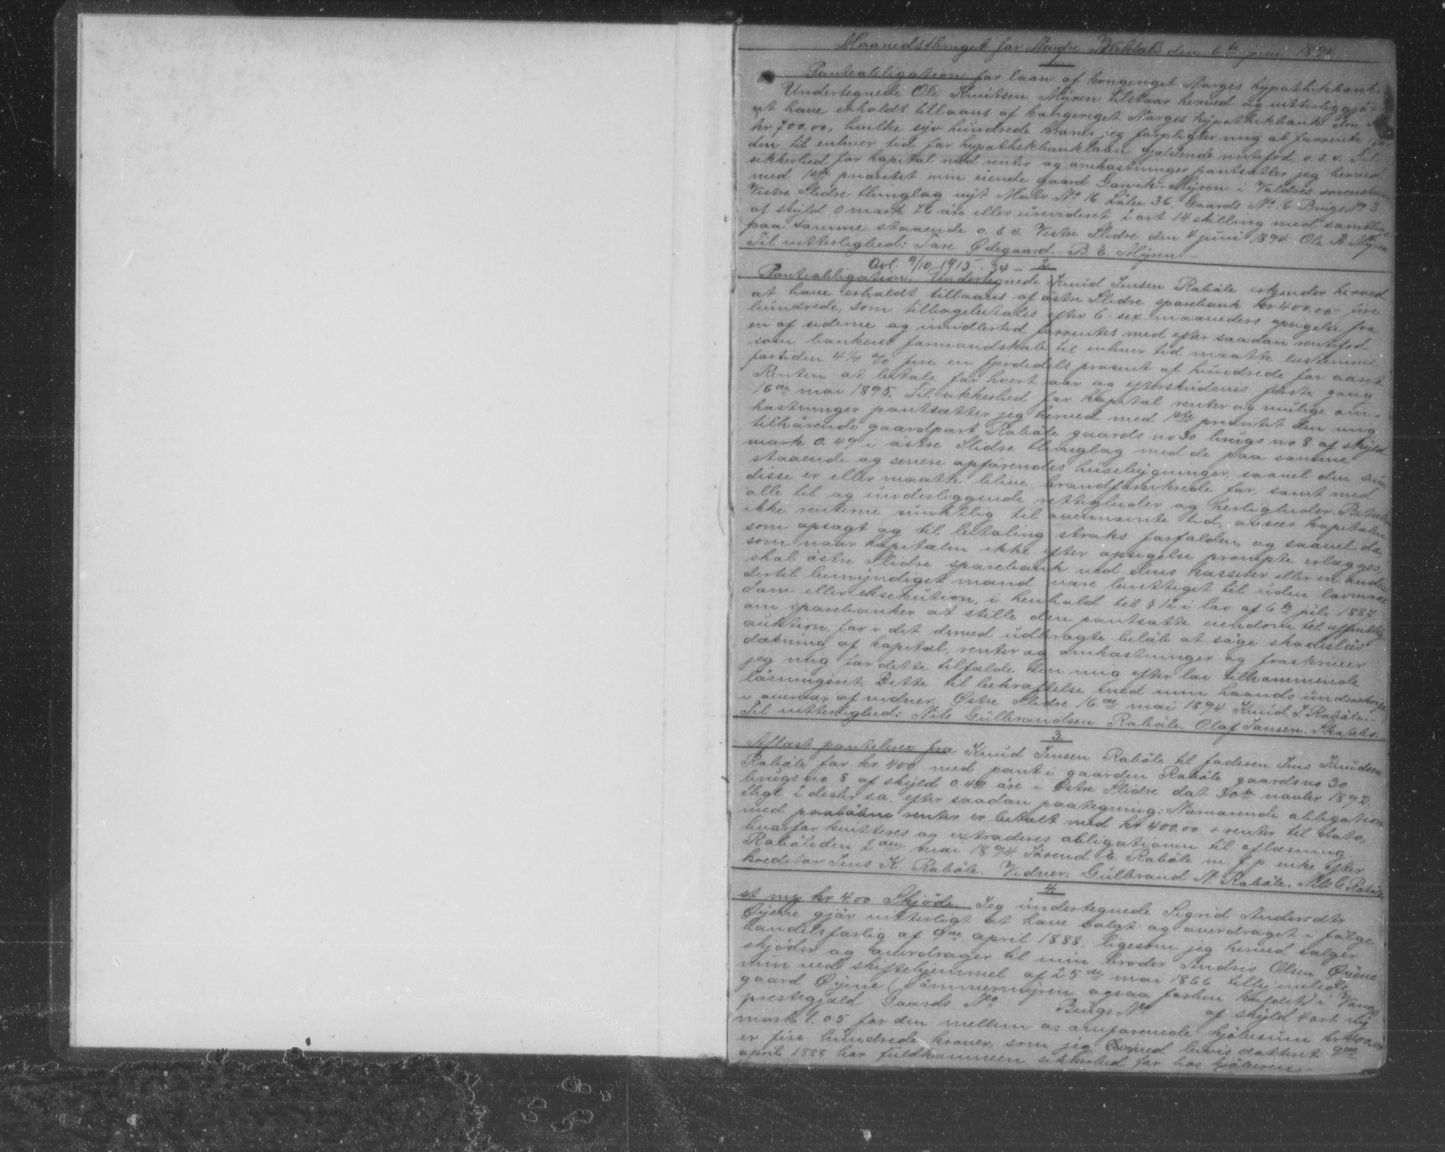 Maanedsthinget for Nordre Valders den 6te juni 1894
1
Panteobligation for laan af kongeriget Norges hypothekbank.
Undertegnede Ole Knutsen Myren tilstaar herved og vitterliggjør
at have erholdt tillaans af kongeriget Norges hypothekbank den
kr 700.00, hvilke syv hundrede kroner jeg forpligter mig at forrente
den til enhver tid for hypothekbanklaan gjældende rentefod o.s.v. Til
sikkerhed for kapital med renter og omkostninger pantsætter jeg herved
med 1ste prioritet min eiende gaard Myren i Valdres sorenskriveri
Vestre Slidre thinglag nyt Matr No 16 Løbe 36, Gaards No 6 Brugs No 3
af skyld 0 mark 76 øre eller urevideret 2 ort 14 skilling med
paa samme staaende o.s.v. Vestre Slidre den 4 juni 1894 Ole K. Myren
Til vitterlighed: Tore Ødegaard. B. E. Myren.
Avl. 9/10-1913 - 94 - 2
Panteobligation. Undertegnede Knud Jensen Rabøle erkjender herved
at have erholdt tillaans af østre Slidre sparebank kr 400.00 - fire
hundrede, som tilbagebetales efter 6 - sex maaneders opsigelse fra
en af siderne og imidlertid forrentes med efter saadan rentefod
som bankens formandskab til enhver tid maatte bestemme
fortiden 4 1/4 % fire en fjerdedels procent af hundrede for aaret
Renten at betale for hvert aar og efterskudsvis første gang
16de mai 1895. Til sikkerhed for kapital renter og mulige om-
kostninger pantsætter jeg herved med 1ste prioritet den mig
tilhørende gaardpart Rabøle gaards no 30 brugs no 8 af skyld
mark 0.49 i østre Slidre thinglag med de paa samme
staaende og senere opførendes husebygninger saavel den sum
disse er eller maatte blive brandforsikrede for, samt med
alle til og underliggende rettigheder og herligheder. Betales
ikke renterne punktlig til ovennævnte tid, ansees kapitalen
som opsagt og til betaling straks forfalden, og saavel da
som naar kapitalen ikke efter opsigelse prompte erlægges,
skal østre Slidre sparebank ved dens kasserer eller en anden
dertil bemyndiget mand være berettiget til uden lovmaal
dom eller eksekution, i henhold til § 12 i lov af 6te juli 1887
om sparebanker at stille den pantsatte eiendom til offentlig
auktion, for i det derved udbragte beløb at søge skadesløs
dækning af kapital, renter og omkostninger og fraskriver
jeg mig for dette tilfælde den mig efter lov tilkommende
løsningsret. Dette til bekræftelse med min haands underskrift
i overvær af vidner. Østre Slidre 16de mai 1894 Knud J Rabøle.
Til vitterlighed: Nils Gulbrandsen Rabøle. Olaf Jansen.
3.
Aflæst pantebrev fra Knud Jensen Rabøle til faderen Jens Knudsen
Rabøle for kr 400 med pant i gaarden Rabøle gaards no 30
brugs no 8 af skyld 0.49 øre i Østre Slidre dat 30te novbr 1892.
efter saadan paategning: Nærværende obligation
med paaløbne renter er betalt med kr 400.00 + renter til dato,
hvorfor kvitteres og extraderes obligationen til aflæsning
Rabøle den 2den mai 1894 Jørend E. Rabøle m. f. p enke efter
kreditor Jens K. Rabøle. Vidner: Gulbrand N. Rabøle.
4.
st mp kr 400 Skjøde. Jeg undertegnede Sigrid Andersdtr
Øjene gjør vitterligt at have solgt og overdraget i følge
handelsforlig af 9de april 1888, ligesom jeg herved sælger
skjøder og overdrager til min broder Andris Olsen Øjene
min ved skiftehjemmel af 25de mai 1866
gaard Øjene (Tømmermyren ogsaa forhen kaldet) i Vangs
prestegjæld Gaards No Brugs No af skyld
mark 1.05 for den mellem os omforenede kjøbesum kr 400.00
er fire hundrede kroner, som jeg bevis dateret 9de
april 1888 har fuldkommen sikkerhed for hos kjøberen